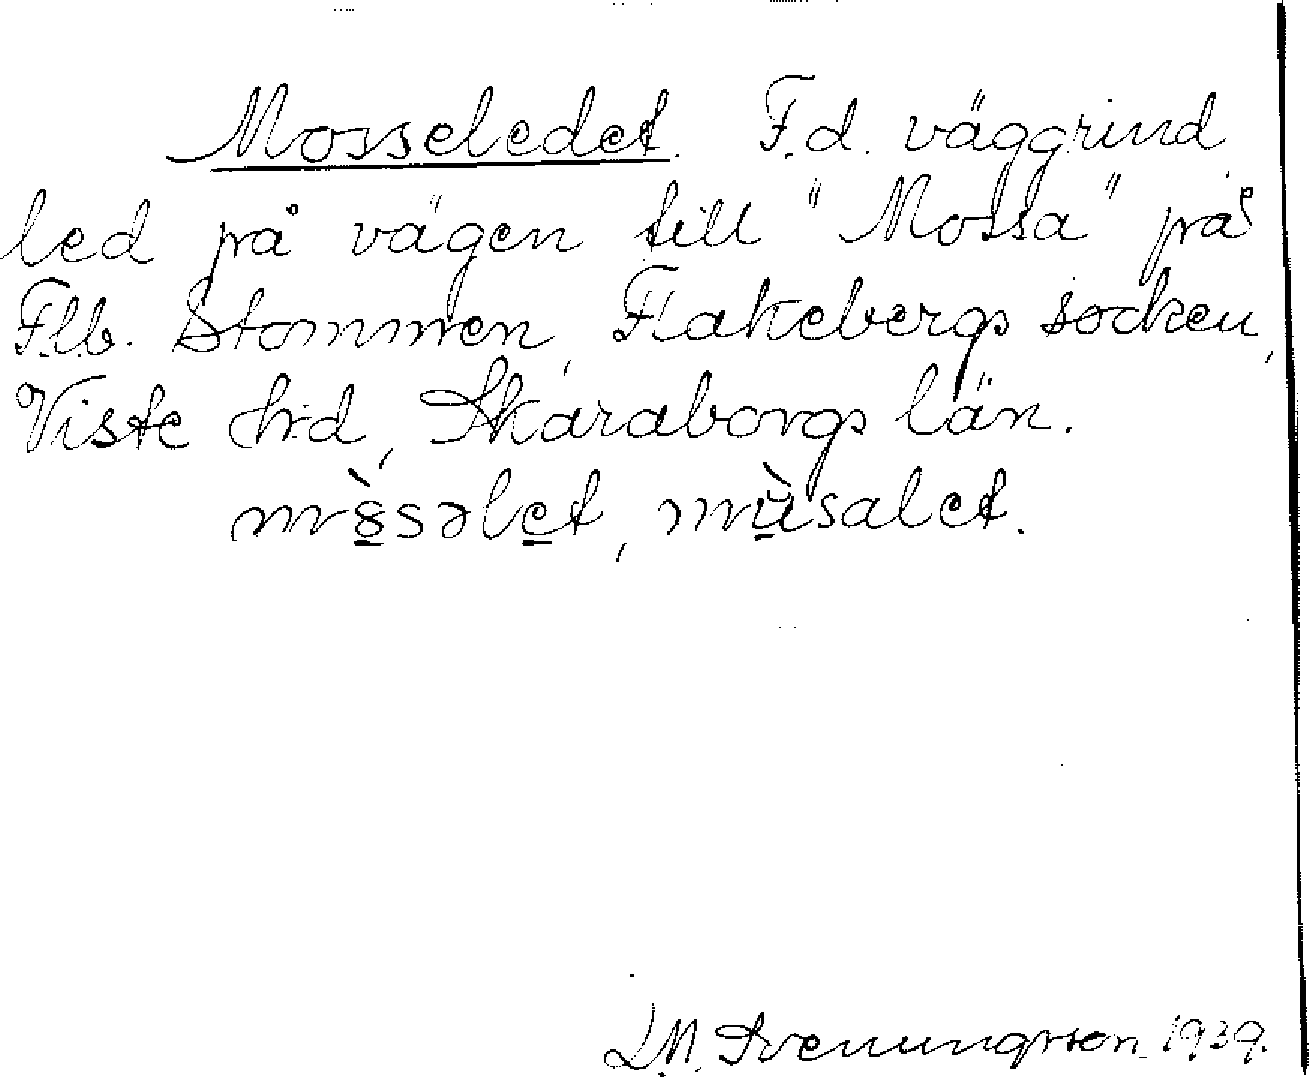 Mosseledet. F.d. väggrind
led på vägen till "Mossa" på
Flb. Stommen, Flakebergs socken,
Viste hd, Skaraborgs län.
m8̀səlet, mùsalet.
D.M. Svenungsson 1939.